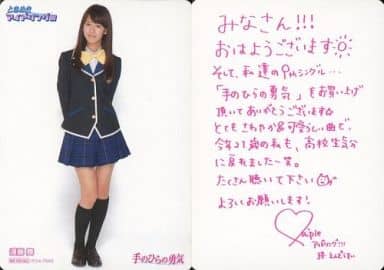 アイドリング!!!
遠藤 舞
手のひらの勇気
みなさん!!!
おはようございます
そして、私達の9thシングル…
「手のひらの勇気」をお買い上げ
頂いてありがとうございます
とてもさわやか&可愛らしい曲で、
今年21歳の私も、高校生気分
に戻れました〜笑。
たくさん聴いて下さい
よろしくお願いします!
アイドリング!!!